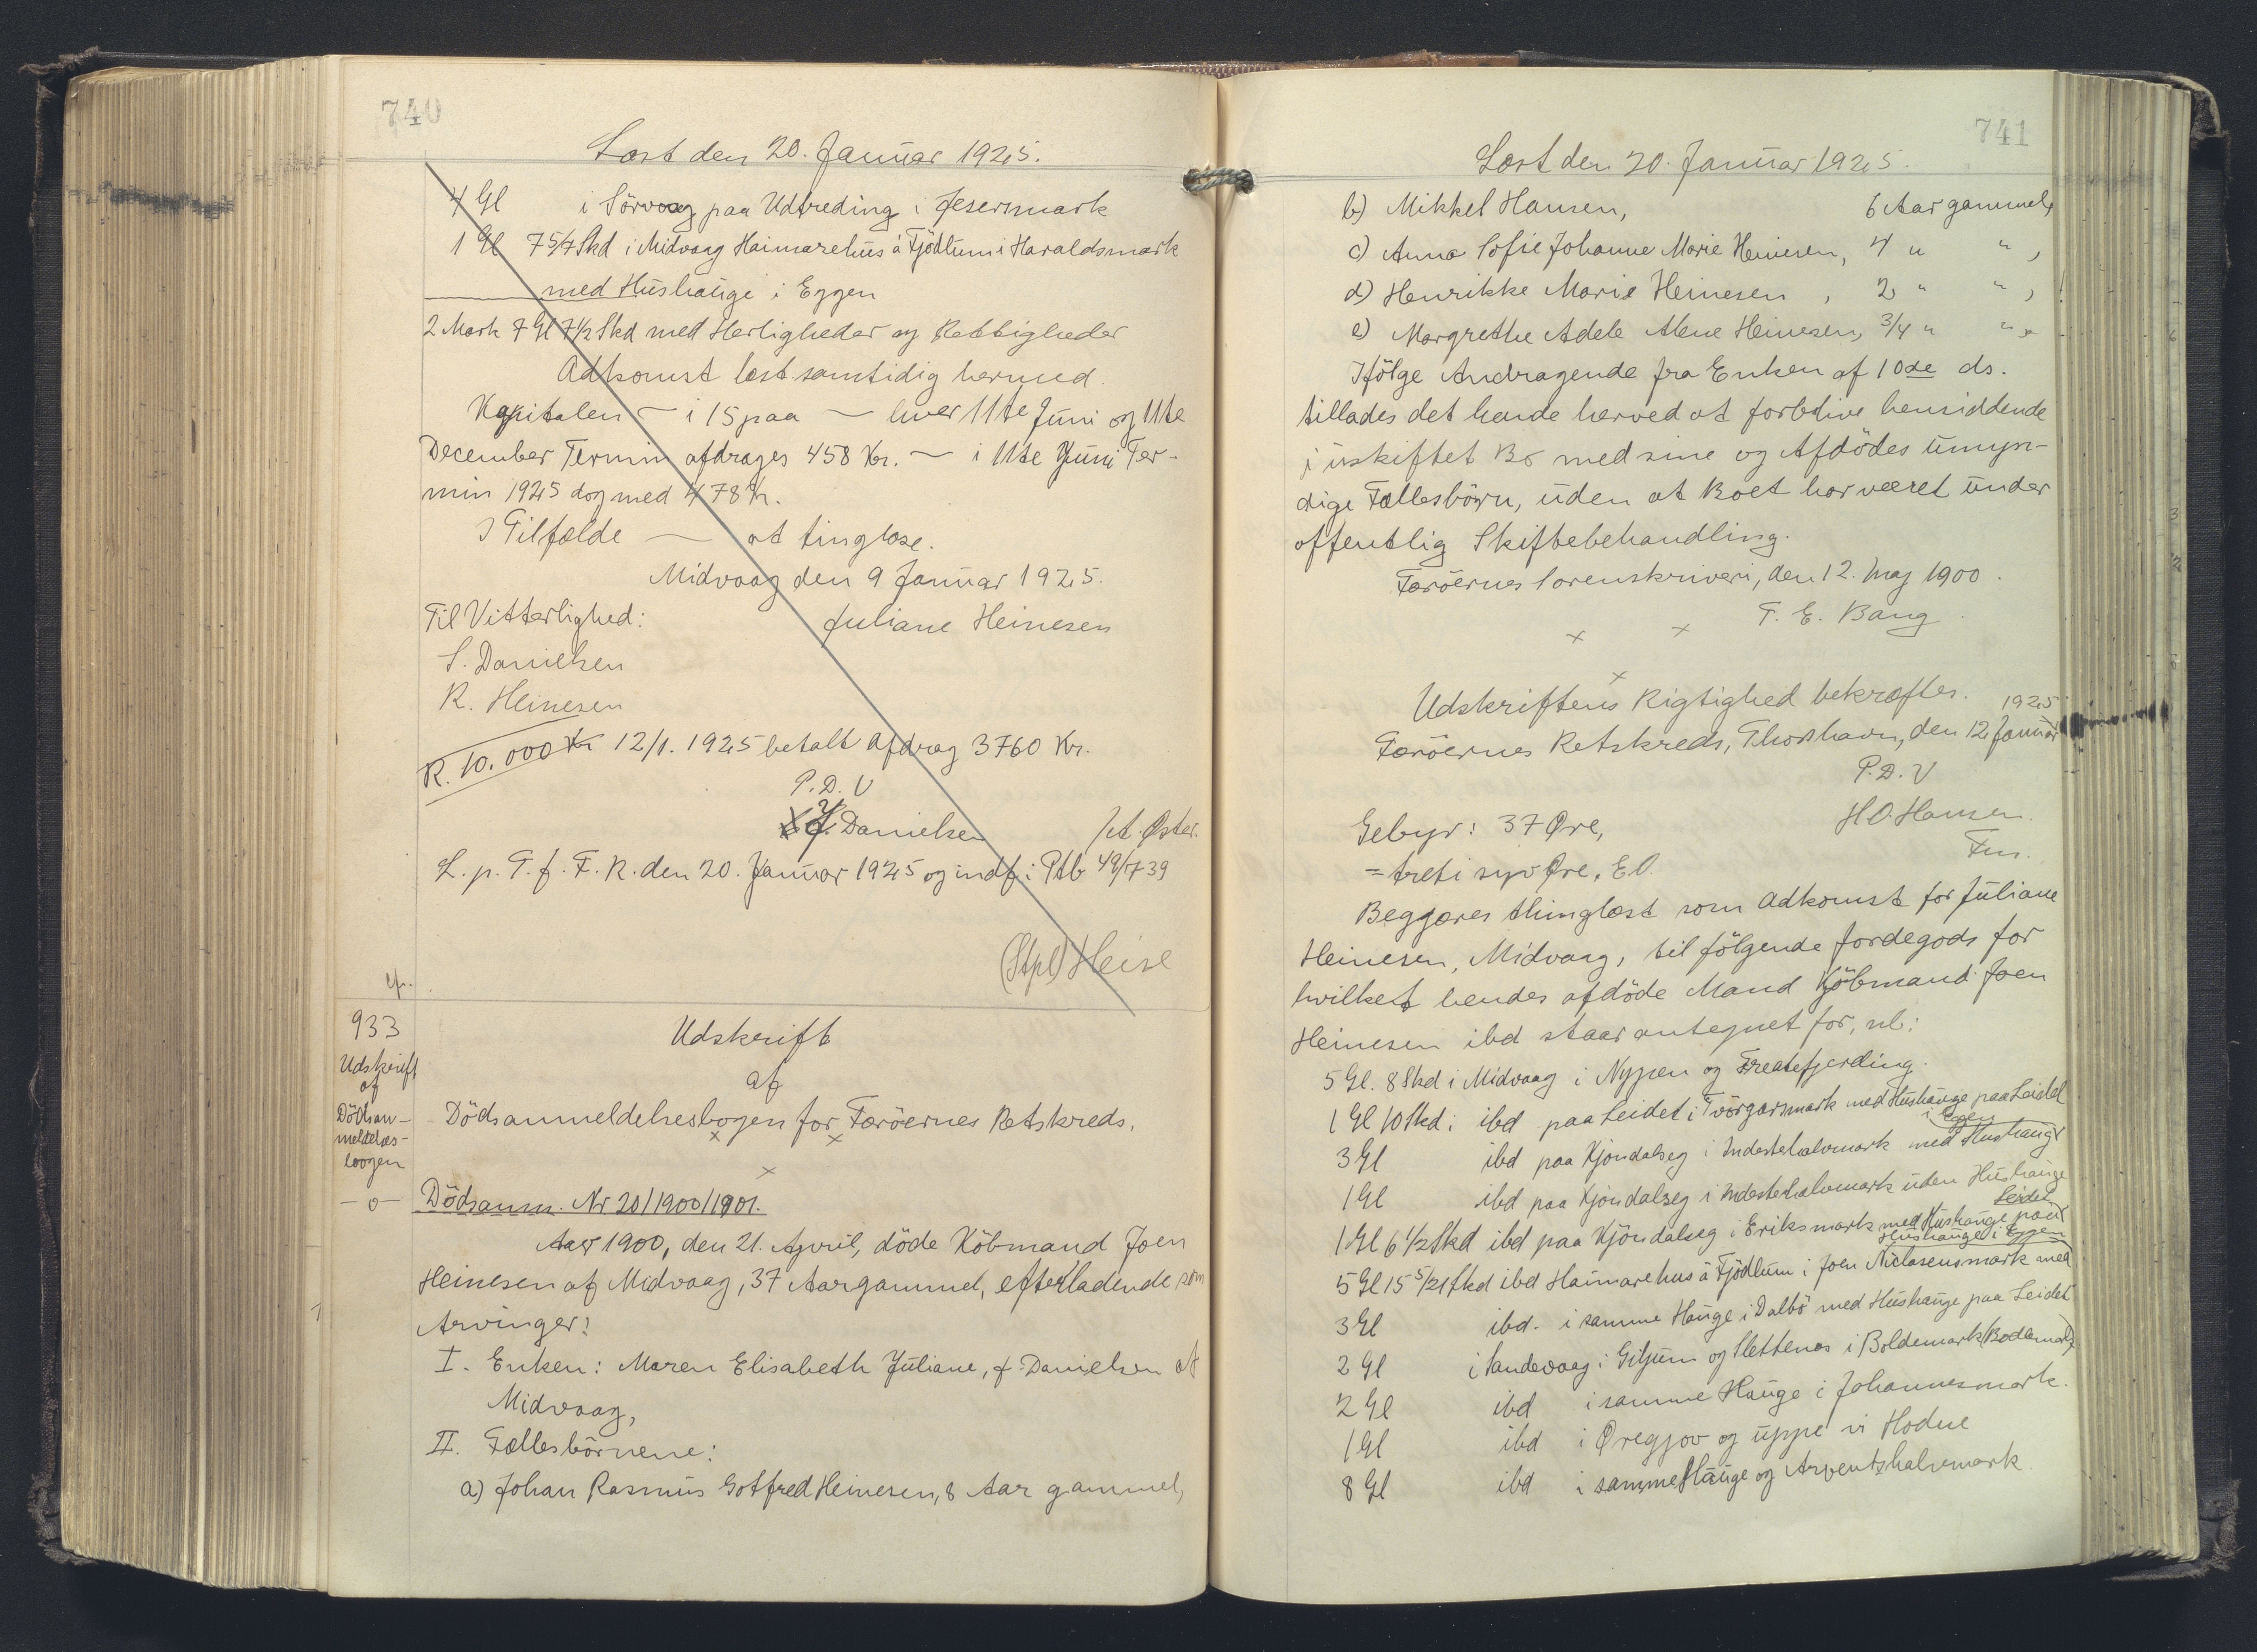 740
Læst den 20. Januar 1925.
4 Gl i Sörvaag paa Udtreding i Jesersmark
1 Gl 7 5/7 Skd i Midvaag Haimarehus á Fjödlum i Haraldsmark
med Hushauge i Eggen
2 Mark 7 Gl 7 1/2 Skd med Herligheder og Rettigheder
Adkomst læst samtidig hermed.
Kapitalen — i 15 paa — hver 11te Juni og 11te
December Termin afdrages 458 Kr. — i 11te Juni Ter-
min 1925 dog med 478 Kr.
I Tilfælde — at tinglæse.
Midvaag den 9 Januar 1925.
Til Vitterlighed: Juliane Heinesen
S. Danielsen
R. Heinesen
R. 10.000 Kr 12/1. 1925 betalt Afdrag 3760 Kr.
P. D. V
J. Danielsen /st. Øster.
L. p. T. f. F. R. den 20. Januar 1925 og indf i Ptb 49/739
(Stpl) Heise
933
Udskrift
af
Dödsan-
meldelses-
bogen
—o—
Udskrift
af
Dödsanmeldelsesbogen for Færöernes Retskreds.
x x
x
Dödsanm. Nr 20/1900/1901.
Aar 1900, den 21. April, döde Köbmand Joen
Heinesen af Midvaag, 37 Aar gammel, efterladende som
Arvinger:
I. Enken: Maren Elisabeth Juliane, f. Danielsen af
Midvaag,
II. Fællesbörnene:
a) Johan Rasmus Gotfred Heinesen, 8 Aar gammel,
741
Læst den 20. Januar 1925.
b) Mikkel Hansen, 6 Aar gammel,
c) Anna Sofie Johanne Marie Heinesen, 4 " " ,
d) Henrikke Marie Heinesen , 2 " " ,
e) Margrethe Adele Alene Heinesen, 3/4 " " .
Ifölge Andragende fra Enken af 10de ds.
tillades det hende herved at forblive hensiddende
i uskiftet Bo med sine og Afdödes umyn-
dige Fællesbörn, uden at Boet har været under
offentlig Skiftebehandling.
Færöernes Sorenskriveri, den 12. Maj 1900.
F. E. Bang.
x x
x
Udskriftens Rigtighed bekræftes.
Færöernes Retskreds, Thorshavn, den 12 Januar 1925
P. D. V
H O Hansen.
Fm.
Gebyr: 37 Øre,
= treti syv Øre. E O.
Begjæres thinglæst som Adkomst for Juliane
Heinesen, Midvaag, til fölgende Jordegods for
hvilket hendes afdöde Mand Köbmand Joen
Heinesen ibd staar antegnet for, nl:
5 Gl. 8 Skd i Midvaag i Nypen og Treatefjerding.
1 Gl 10 Skd i ibd paa Leidet i Tvörgarsmark med Hushauge paa Leidet
3 Gl ibd paa Kjöndalseg i Indestehalvmark med Hushauge i Eggen
1 Gl ibd paa Kjöndalseg i Indestehalvmark uden Hushauge
1 Gl 6 1/2 Skd ibd paa Kjöndalseg i Eriksmark med Hushauge paa Leidet
5 Gl 15 5/21 Skd ibd Haimarehus á Fjödlum i Joen Niclasensmark med Hushauge i Eggen
3 Gl ibd. i samme Hauge i Dalbö med Hushauge paa Leidet
2 Gl i Sandevaag i Giljum og Slettenes i Boldemark (Bodlemark)
2 Gl ibd i samme Hauge i Johannesmark.
1 Gl ibd i Øregjov og uppe vi Hodne
8 Gl ibd i samme Hauge og Arventshalvmark.